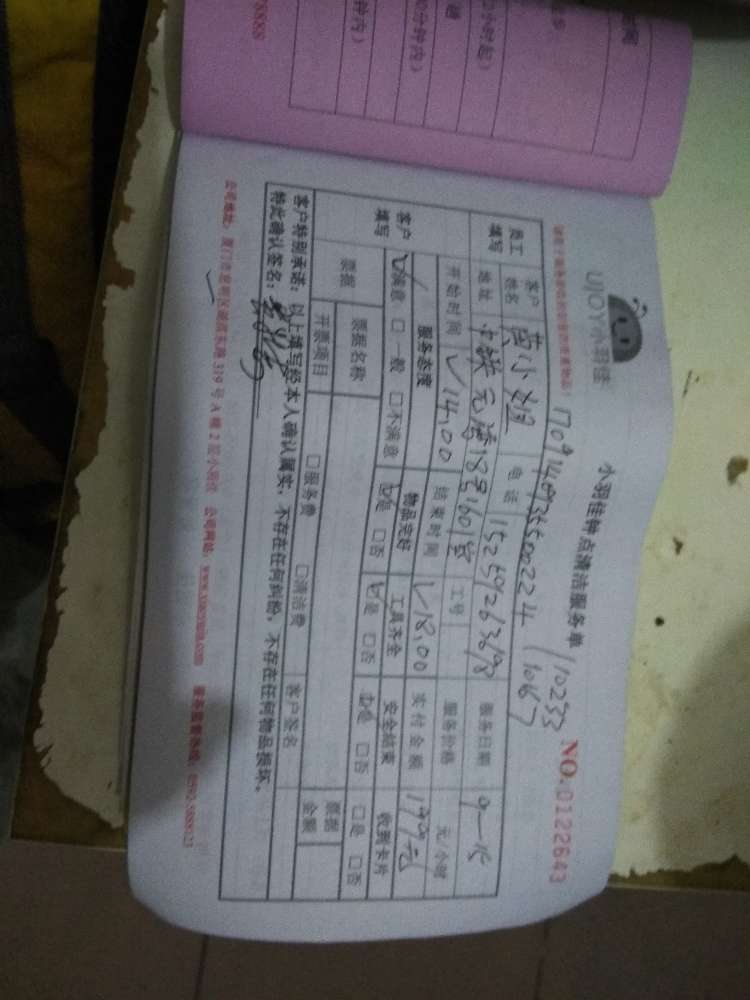 UJOY小羽佳
小羽佳钟点清洁服务单
NO.0122643
110233
17091409355500224 (1067
员工填写
客户姓名 小姐 电话 15259263698 服务日期 9-15
地址 中铁元湾18号1601室 工号 服务价格 元/小时
开始时间 √14,00 结束时间 √18,00 实付金额 199元
客户填写
服务态度 物品完好 工具齐全 安全结束 收到卡片
☑满意 □一般 □不满意 ☑是 □否 ☑是 □否 ☑是 □否 □是 □否
票据 票据名称 客户签名 票据金额
开票项目 □服务费 □清洁费
客户特别承诺:以上填写经本人确认属实,不存在任何纠纷,不存在任何物品损坏。
特此确认签名:
319号A幢2层小羽佳 公司网站:
服务监督热线:0592-5888123
78888
小时起)
0分钟内)
钟内)